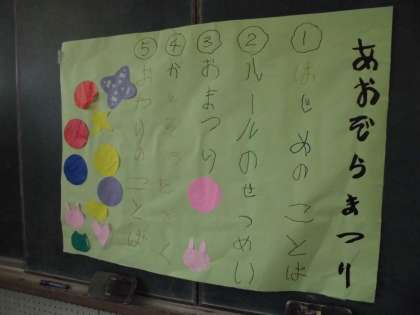 あおぞらまつり
①はじめのことば
②ルールのせつめい
③おまつり
④
⑤おわりのことば